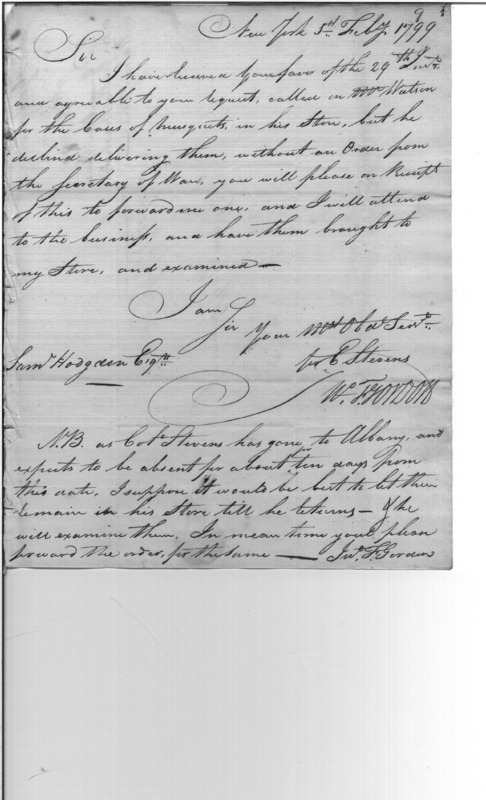 New York 5th Feby. 1799
Sir
I have received your favor of the 29th
and agreable to your request, called on Mr. Watson
for the Cases of Musquets, in his Store, but he
declind delivering them, without an Order from
the Secretary of War, you will please on Receipt
of this to forward me one, and I will attend
to the business, and have them brought to
my Store, and examined —
I am
Sir
Your Most Obdt Servt.
Saml Hodgdon Esqr.
for E Stevens
F Gordon
N.B. as Colo. Stevens has gone to Albany, and
expects to be absent for about ten days from
this date, I suppose it would be best to let them
remain in his Store till he returns — & he
will examine them. In mean time your please
forward the order, for the same — F Gordon